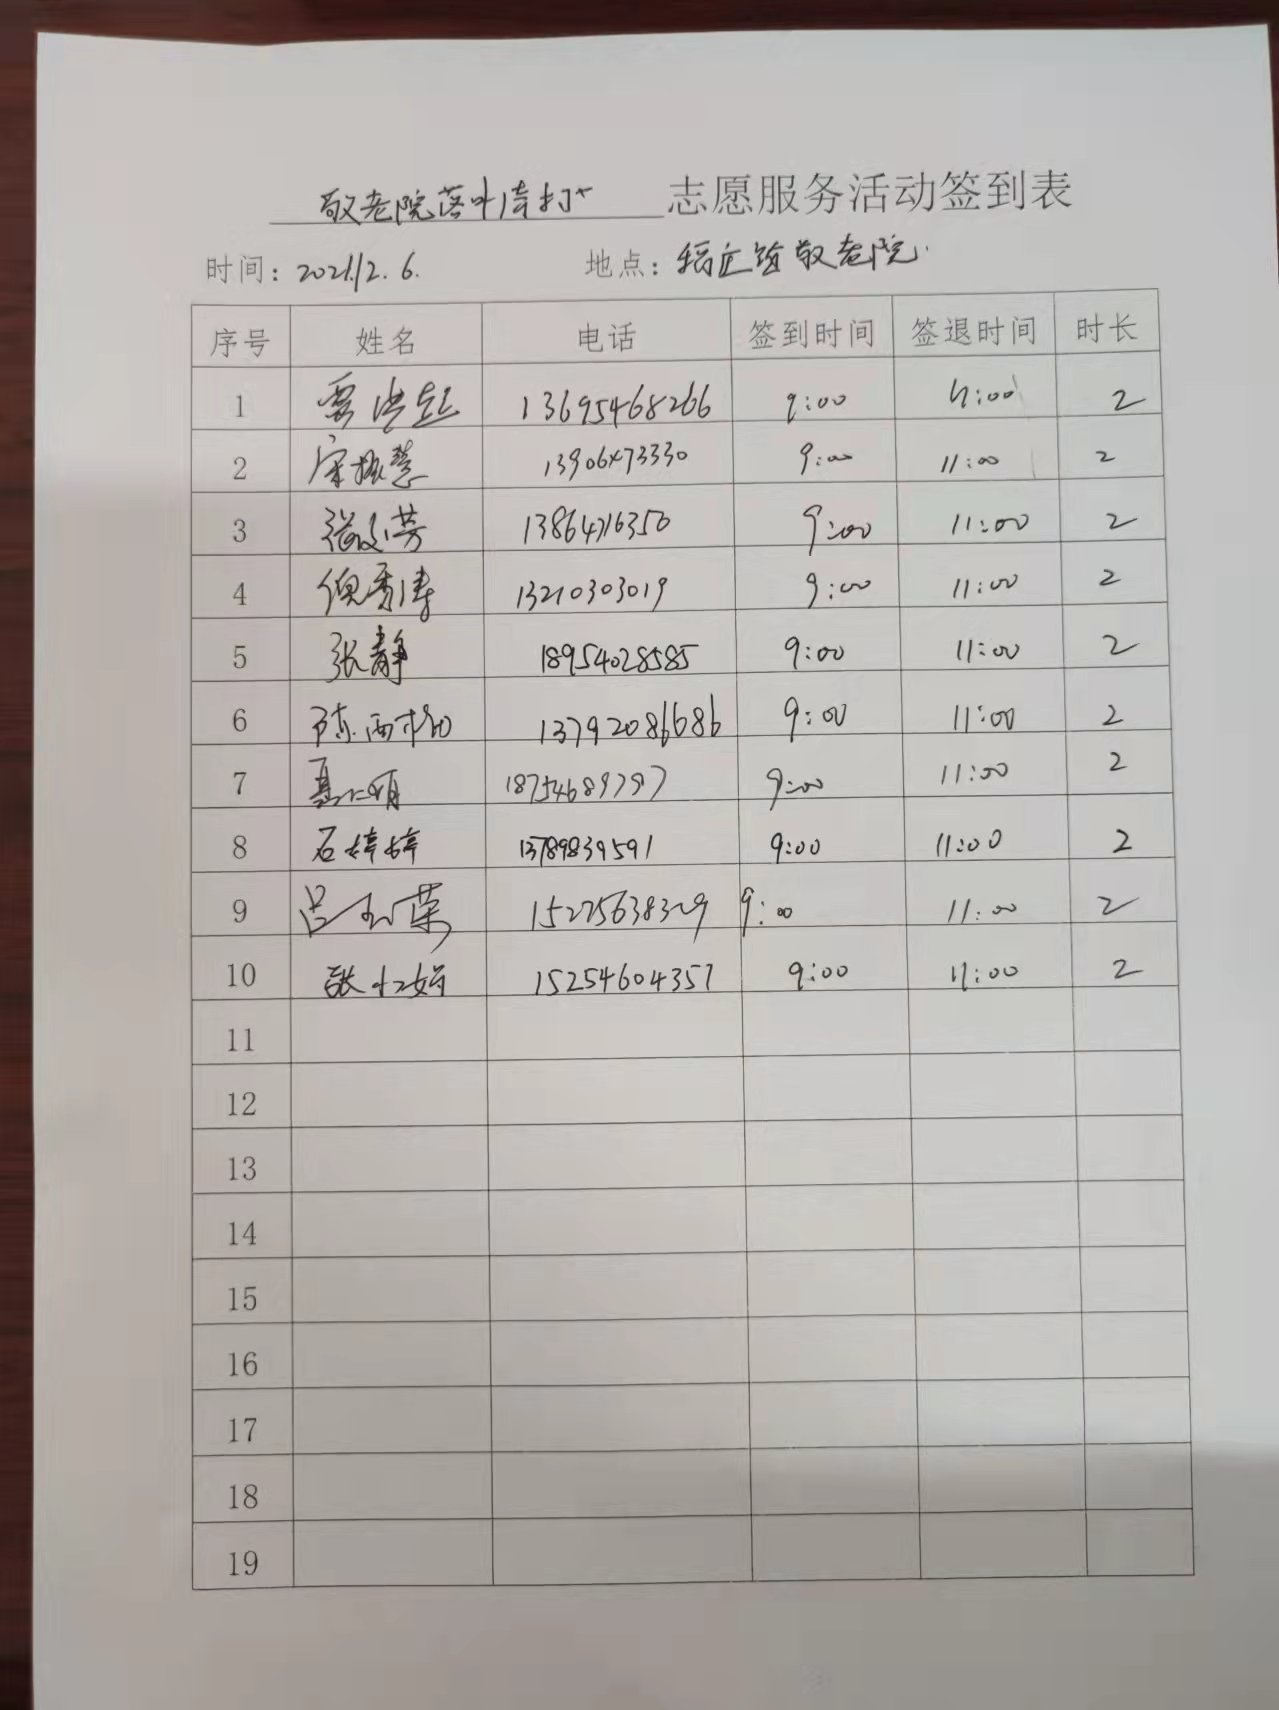 敬老院落叶清扫 志愿服务活动签到表
时间: 2021.12.6. 地点: 稻庄镇敬老院.
序号 姓名 电话 签到时间 签退时间 时长
1 13695468266 9:00 11:00 2
2 宋振慧 13906473330 9:00 11:00 2
3 张文芳 13864716350 9:00 11:00 2
4 倪秀涛 13210303019 9:00 11:00 2
5 张静 18954028585 9:00 11:00 2
6 陈西 13792086686 9:00 11:00 2
7 18754689797 9:00 11:00 2
8 石婷婷 13789839591 9:00 11:00 2
9 吕玉荣 15275638329 9:00 11:00 2
10 张小娟 15254604357 9:00 11:00 2
11
12
13
14
15
16
17
18
19